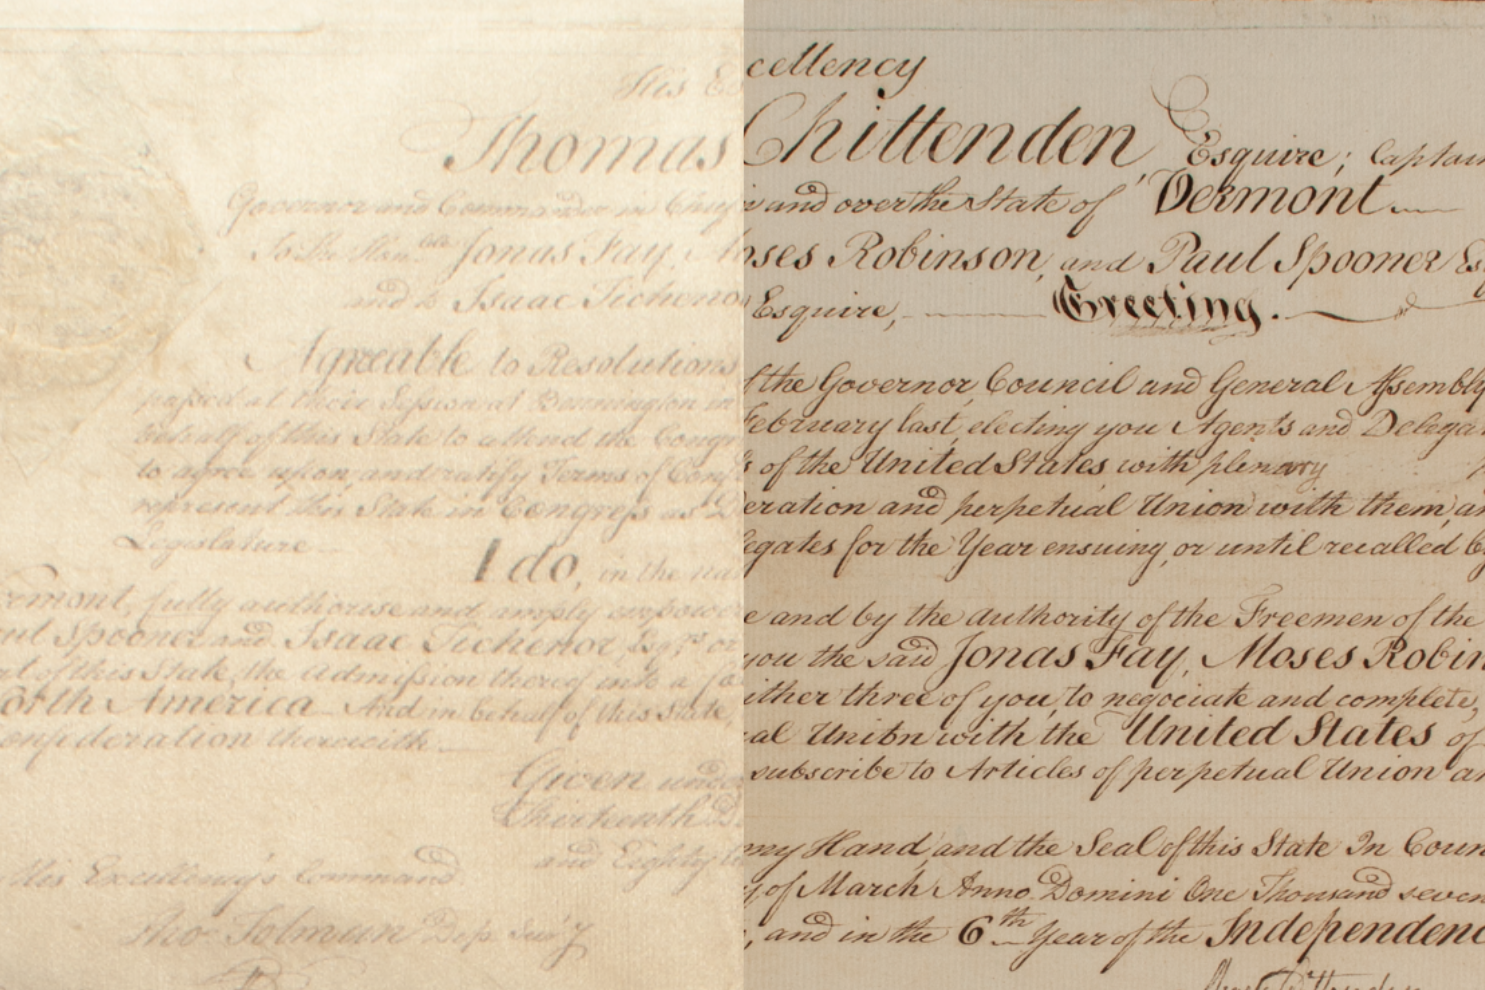 His Excellency
Thomas Chittenden, Esquire; Captain
Governor and Commander in Chief in and over the State of Vermont
To the Honble Jonas Fay, Moses Robinson, and Paul Spooner Es
and to Isaac Tichenor Esquire, Greeting.
Agreeable to Resolutions of the Governor, Council and General Assembly
passed at their Session at Bennington in February last, electing you Agents and Delega
behalf of this State to attend the Congress of the United States, with plenary
to agree upon, and ratify Terms of Confederation and perpetual Union with them, an
represent this State in Congress as Delegates for the Year ensuing, or until recalled b
Legislature
I do, in the name and by the authority of the Freemen of the
ermont, fully authorise and amply empower you the said Jonas Fay, Moses Robin
ul Spooner and Isaac Tichenor Esqrs or either three of you, to negociate and complete,
rt of this State, the admission thereof into a ral Union with the United States of
orth America And in behalf of this State, subscribe to Articles of perpetual Union an
onfederation therewith.
Given under my Hand and the Seal of this State In Coun
Thirteenth Day of March Anno Domini One Thousand seven
and Eighty , and in the 6th Year of the Independenc
His Excellency's Command
Tho Tolman Dep. Sec'y